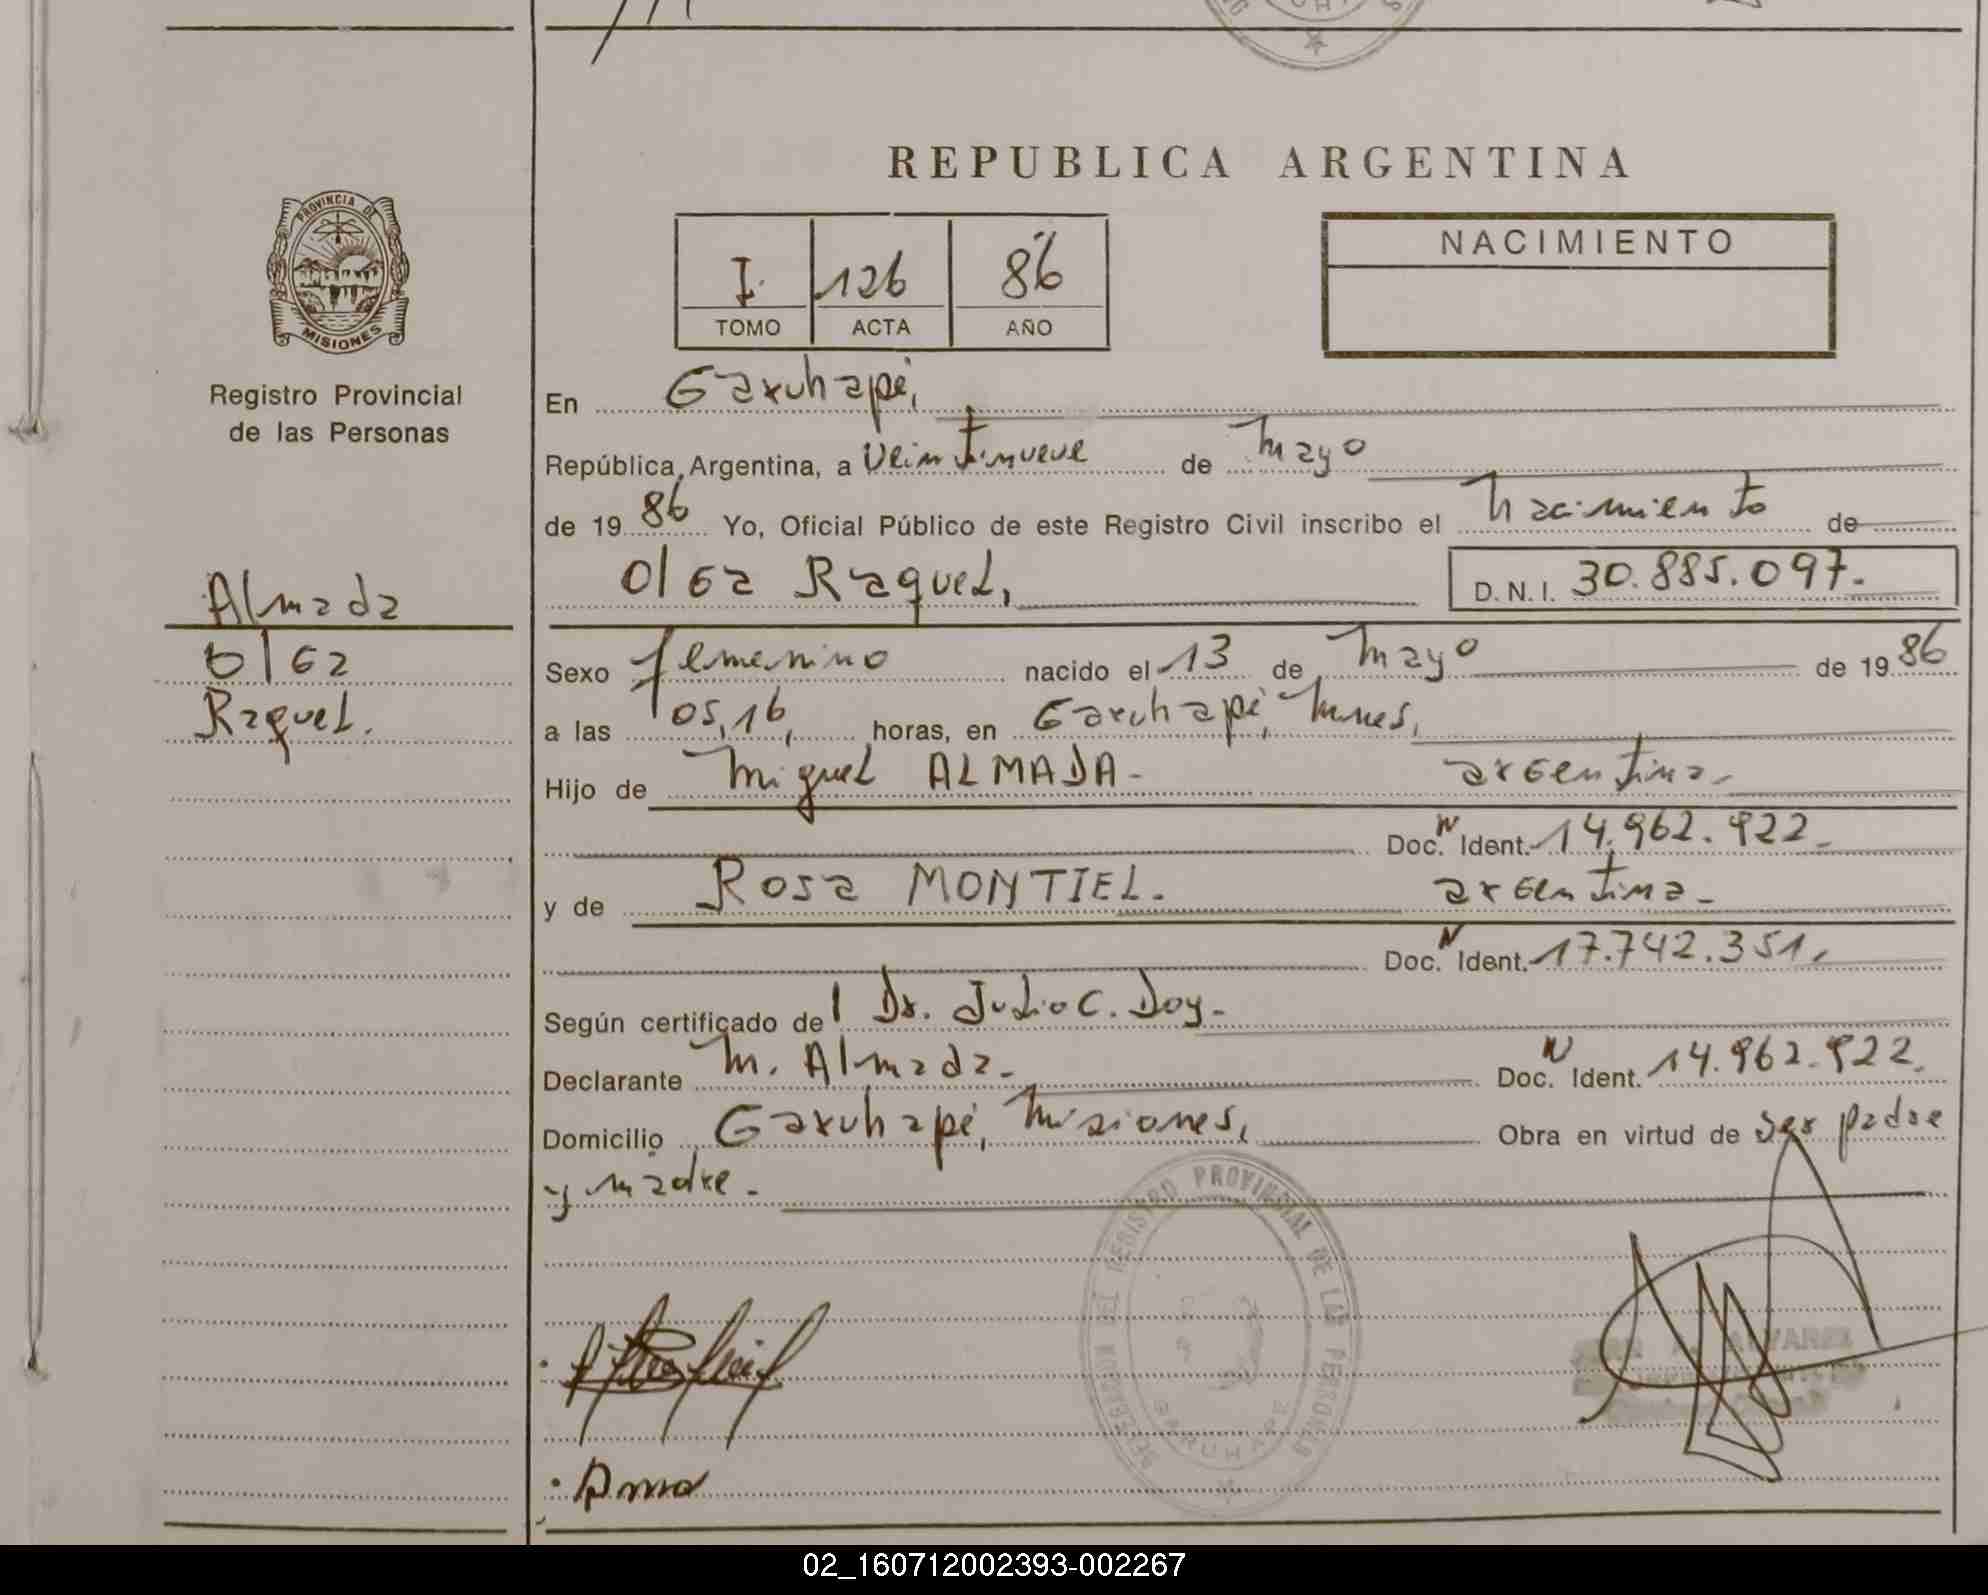 REPUBLICA ARGENTINA
PROVINCIA DE
MISIONES
Registro Provincial
de las Personas
I. 126 86
TOMO ACTA AÑO
NACIMIENTO
En Garuhapé,
República Argentina, a veintinueve de mayo
de 19 86 Yo, Oficial Público de este Registro Civil inscribo el nacimiento de
Olga Raquel, D.N.I. 30.885.097.-
Almada
Olga
Raquel.
Sexo femenino nacido el 13 de mayo de 19 86
a las 05,16, horas, en Garuhapé, Mnes,
Hijo de Miguel ALMADA- argentina-
Doc. N Ident. 14.962.922-
y de Rosa MONTIEL. argentina-
Doc. N Ident. 17.742.351,
Según certificado del Dr. Julio C. Doy-
Declarante M. Almada- Doc. N Ident. 14.962.922,
Domicilio Garuhapé, Misiones, Obra en virtud de ser padre
y madre-
DELEGACION DEL REGISTRO PROVINCIAL DE LAS PERSONAS
GARUHAPE
ALVAREZ
02_160712002393-002267